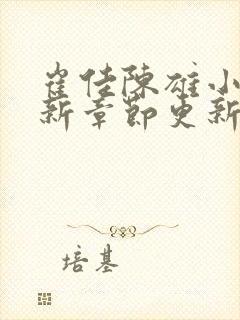 崔佳陳雄小
新章節更新
培基